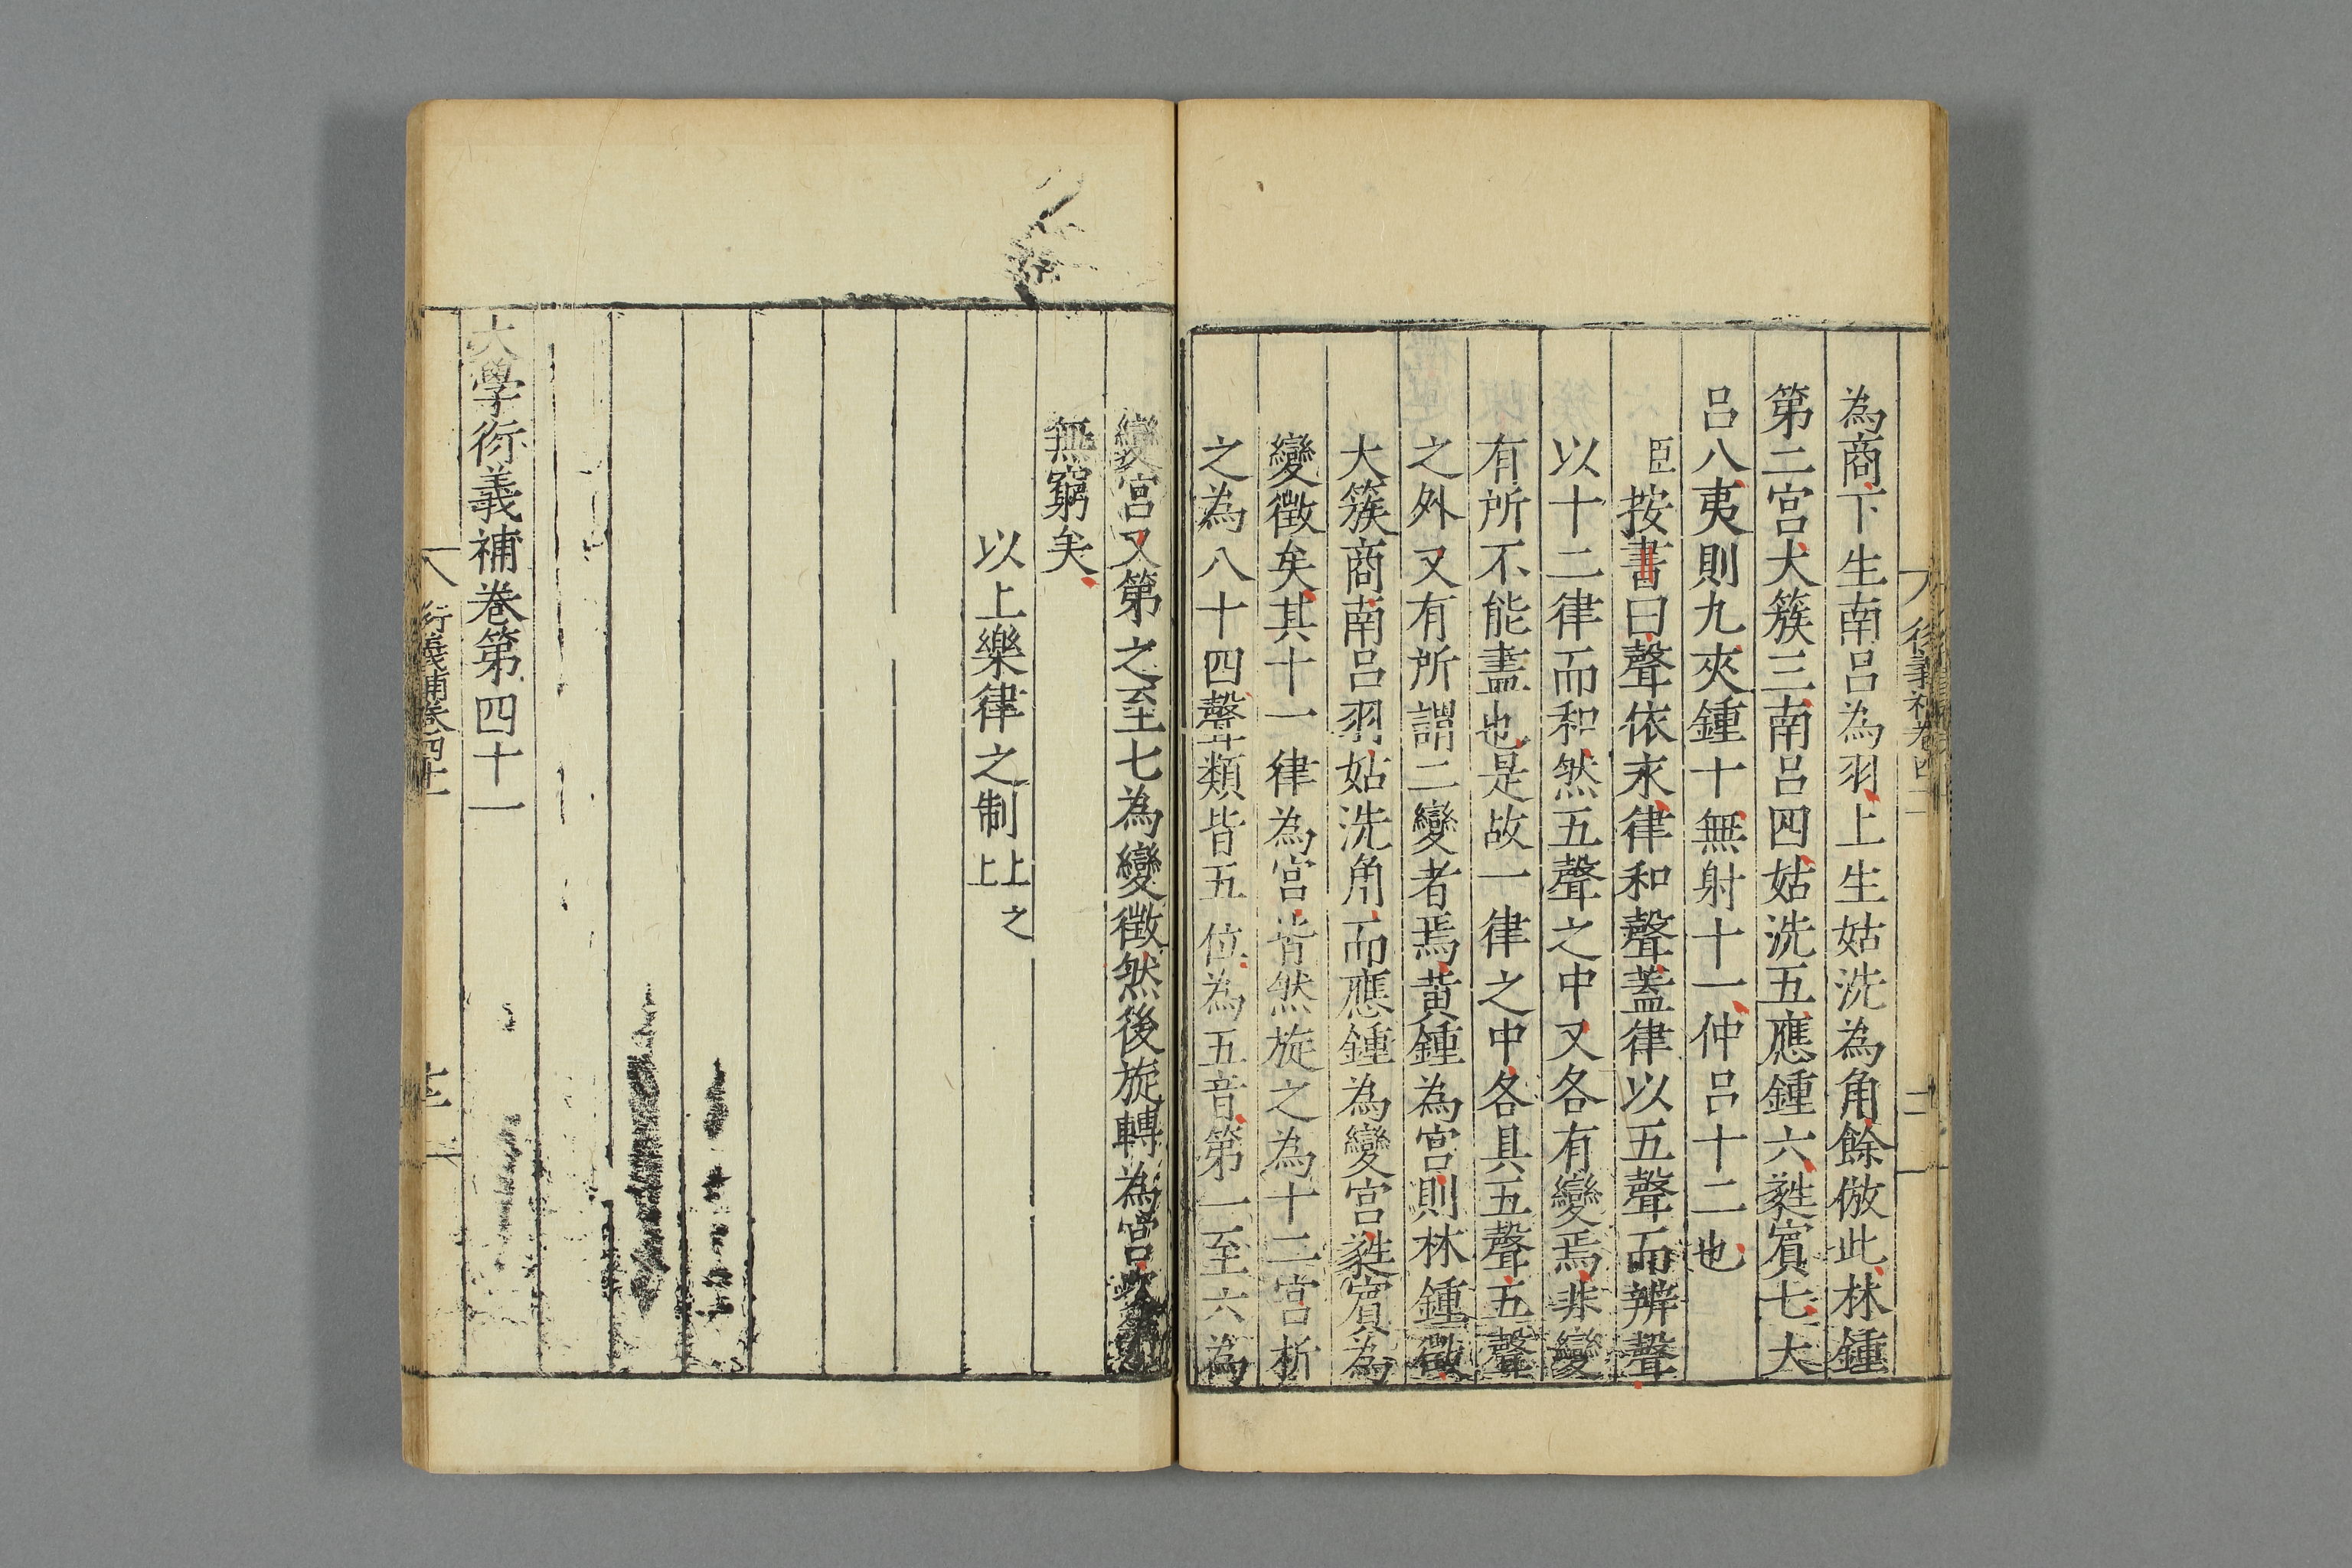 為商下生南呂為羽上生姑洗為角餘倣此林鍾
第二宮大簇三南呂四姑洗五應鍾六蕤賔七大
呂八夷則九夾鍾十無射十一仲呂十二也
臣按書曰聲依永律和聲蓋律以五聲而辨聲
以十二律而和然五聲之中又各有變焉非變
有所不能盡也是故一律之中各具五聲五聲
之外又有所謂二變者焉黃鍾為宮則林鍾徵
大簇商南呂羽姑洗角而應鍾為變宮蕤賔為
變徵矣其十一律為宮皆然旋之為十二宮析
之為八十四聲類皆五位為五音第一至六為
變宮又第之至七為變徵然後旋轉為宮
無窮矣
以上樂律之制上之上
大學衍義補卷第四十一
衍義補卷四十一